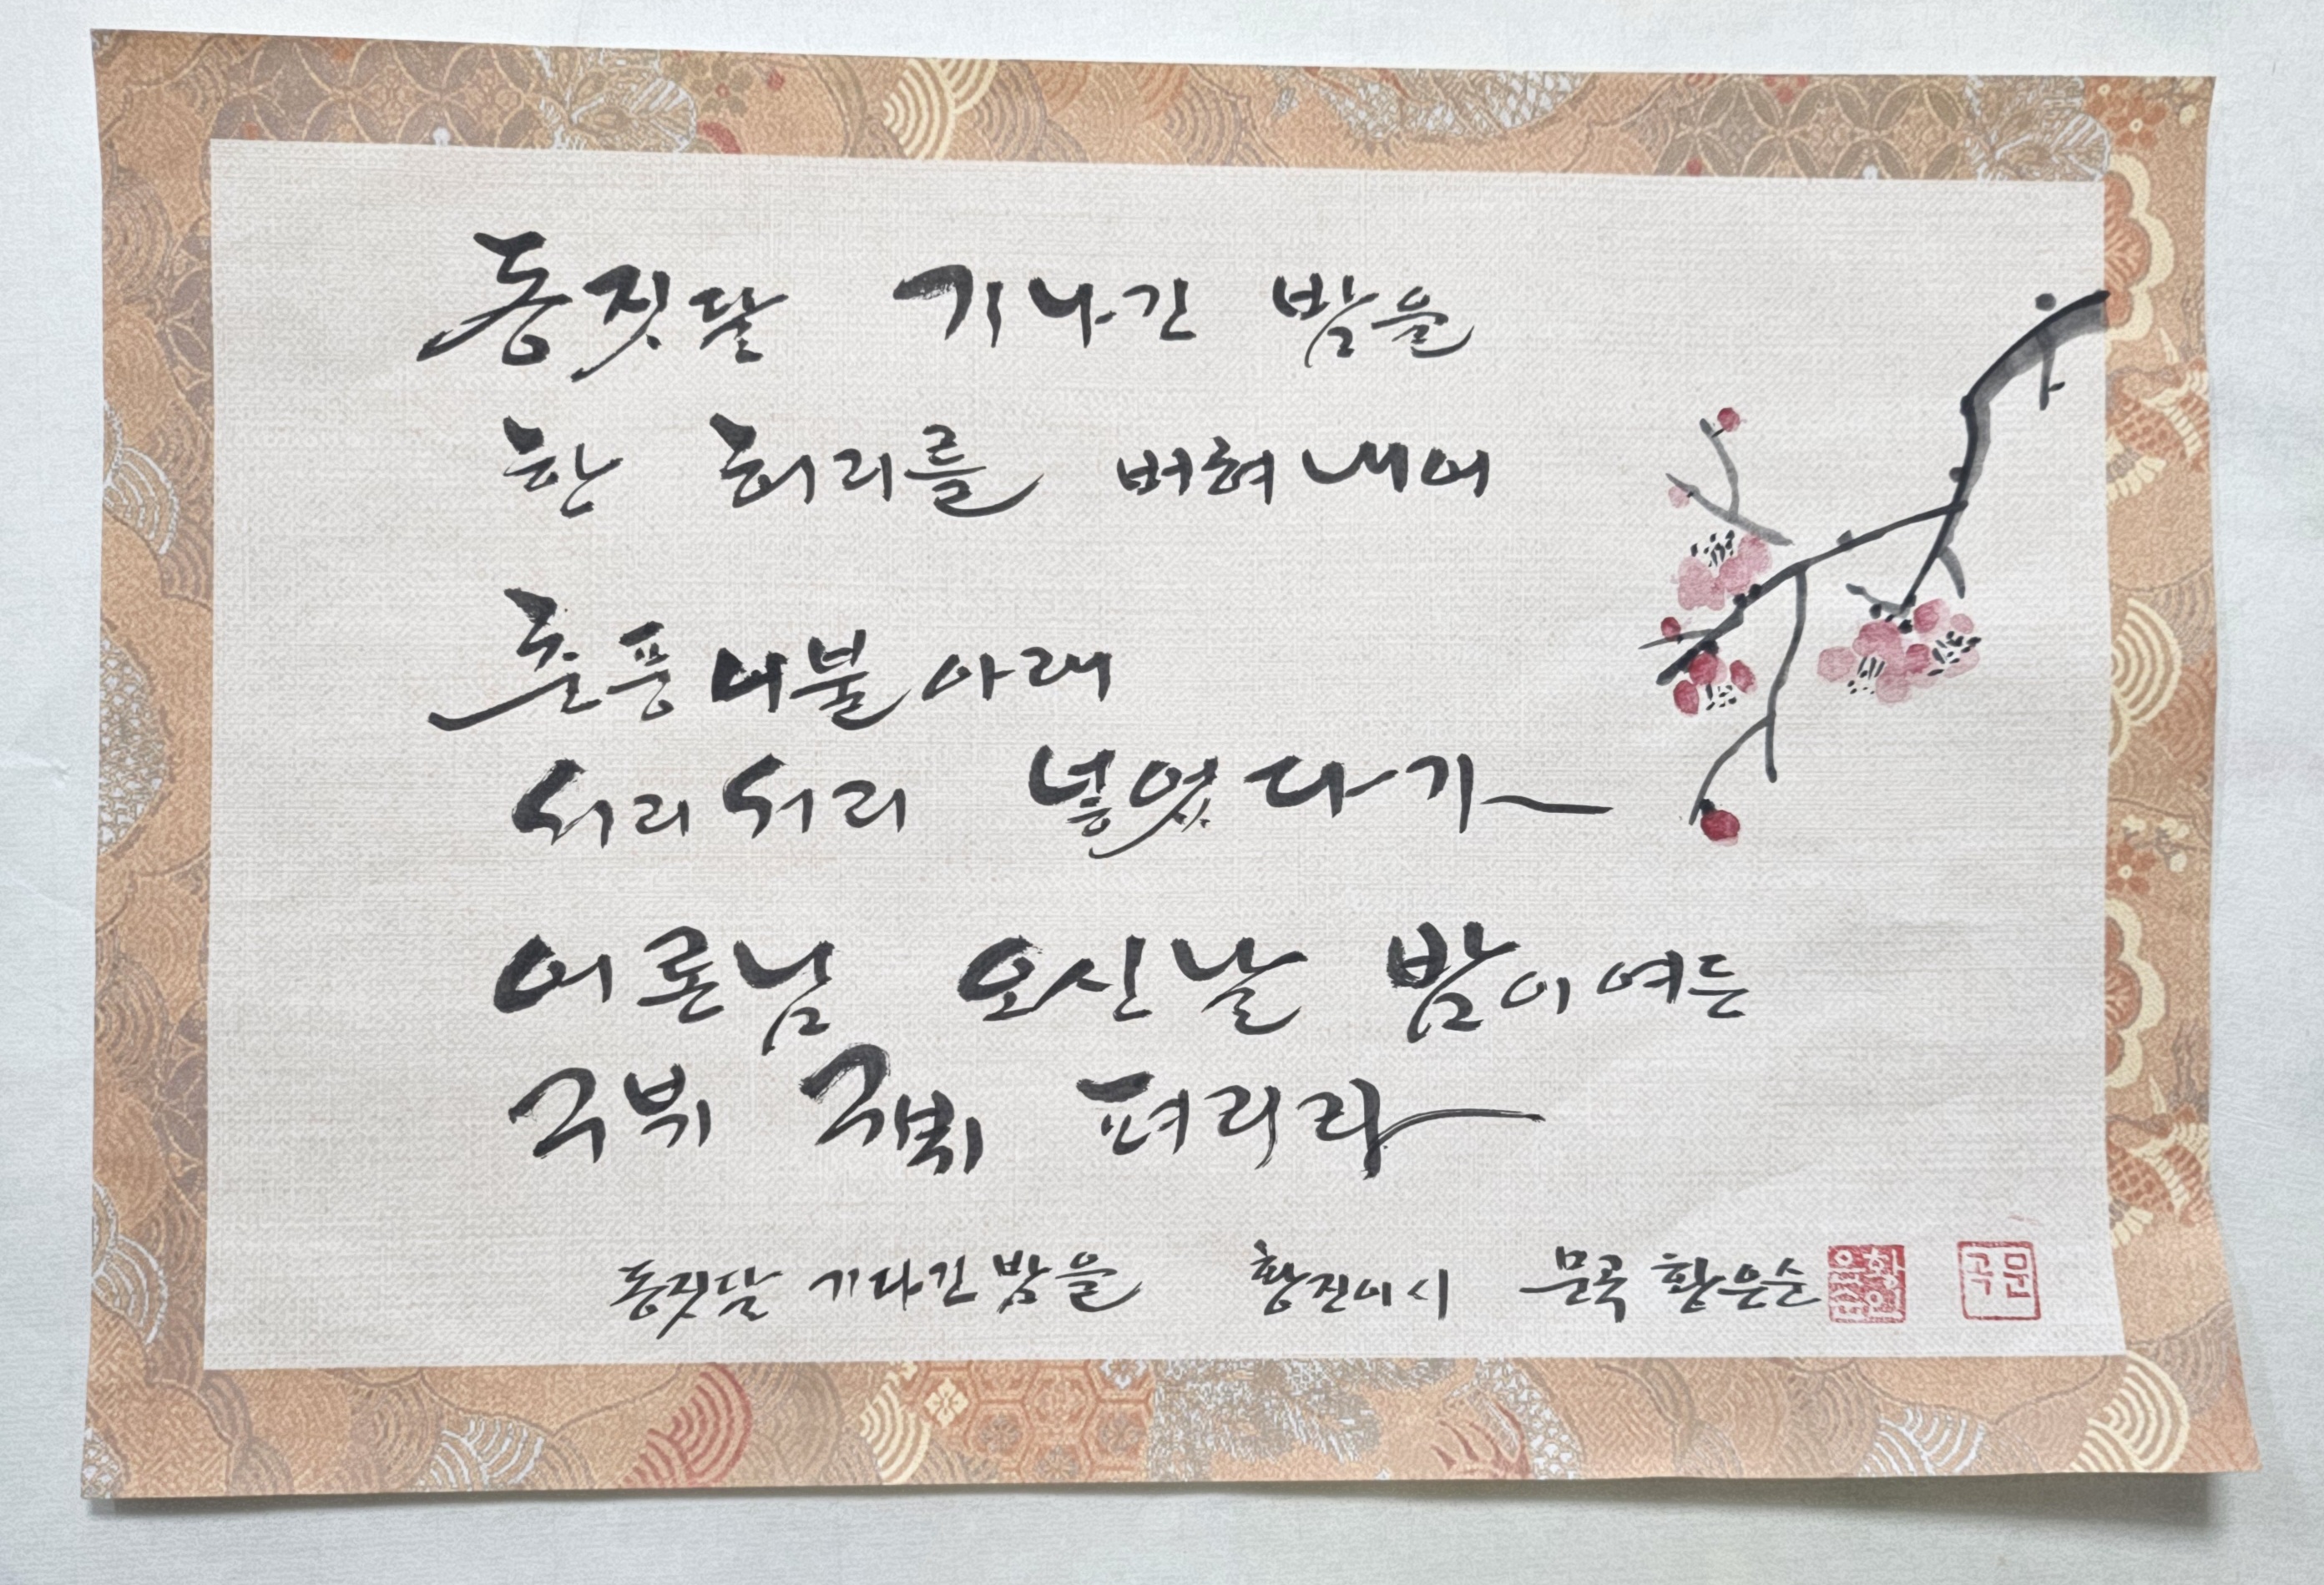 동짓달 기나긴 밤을
한 허리를 버혀내어
춘풍이불아래
서리서리 넣었다가
어론님 오신날 밤이여든
구뷔 구뷔 펴리라
동짓달 기나긴밤을 황진이 시 문곡 황은순 황은순 문곡